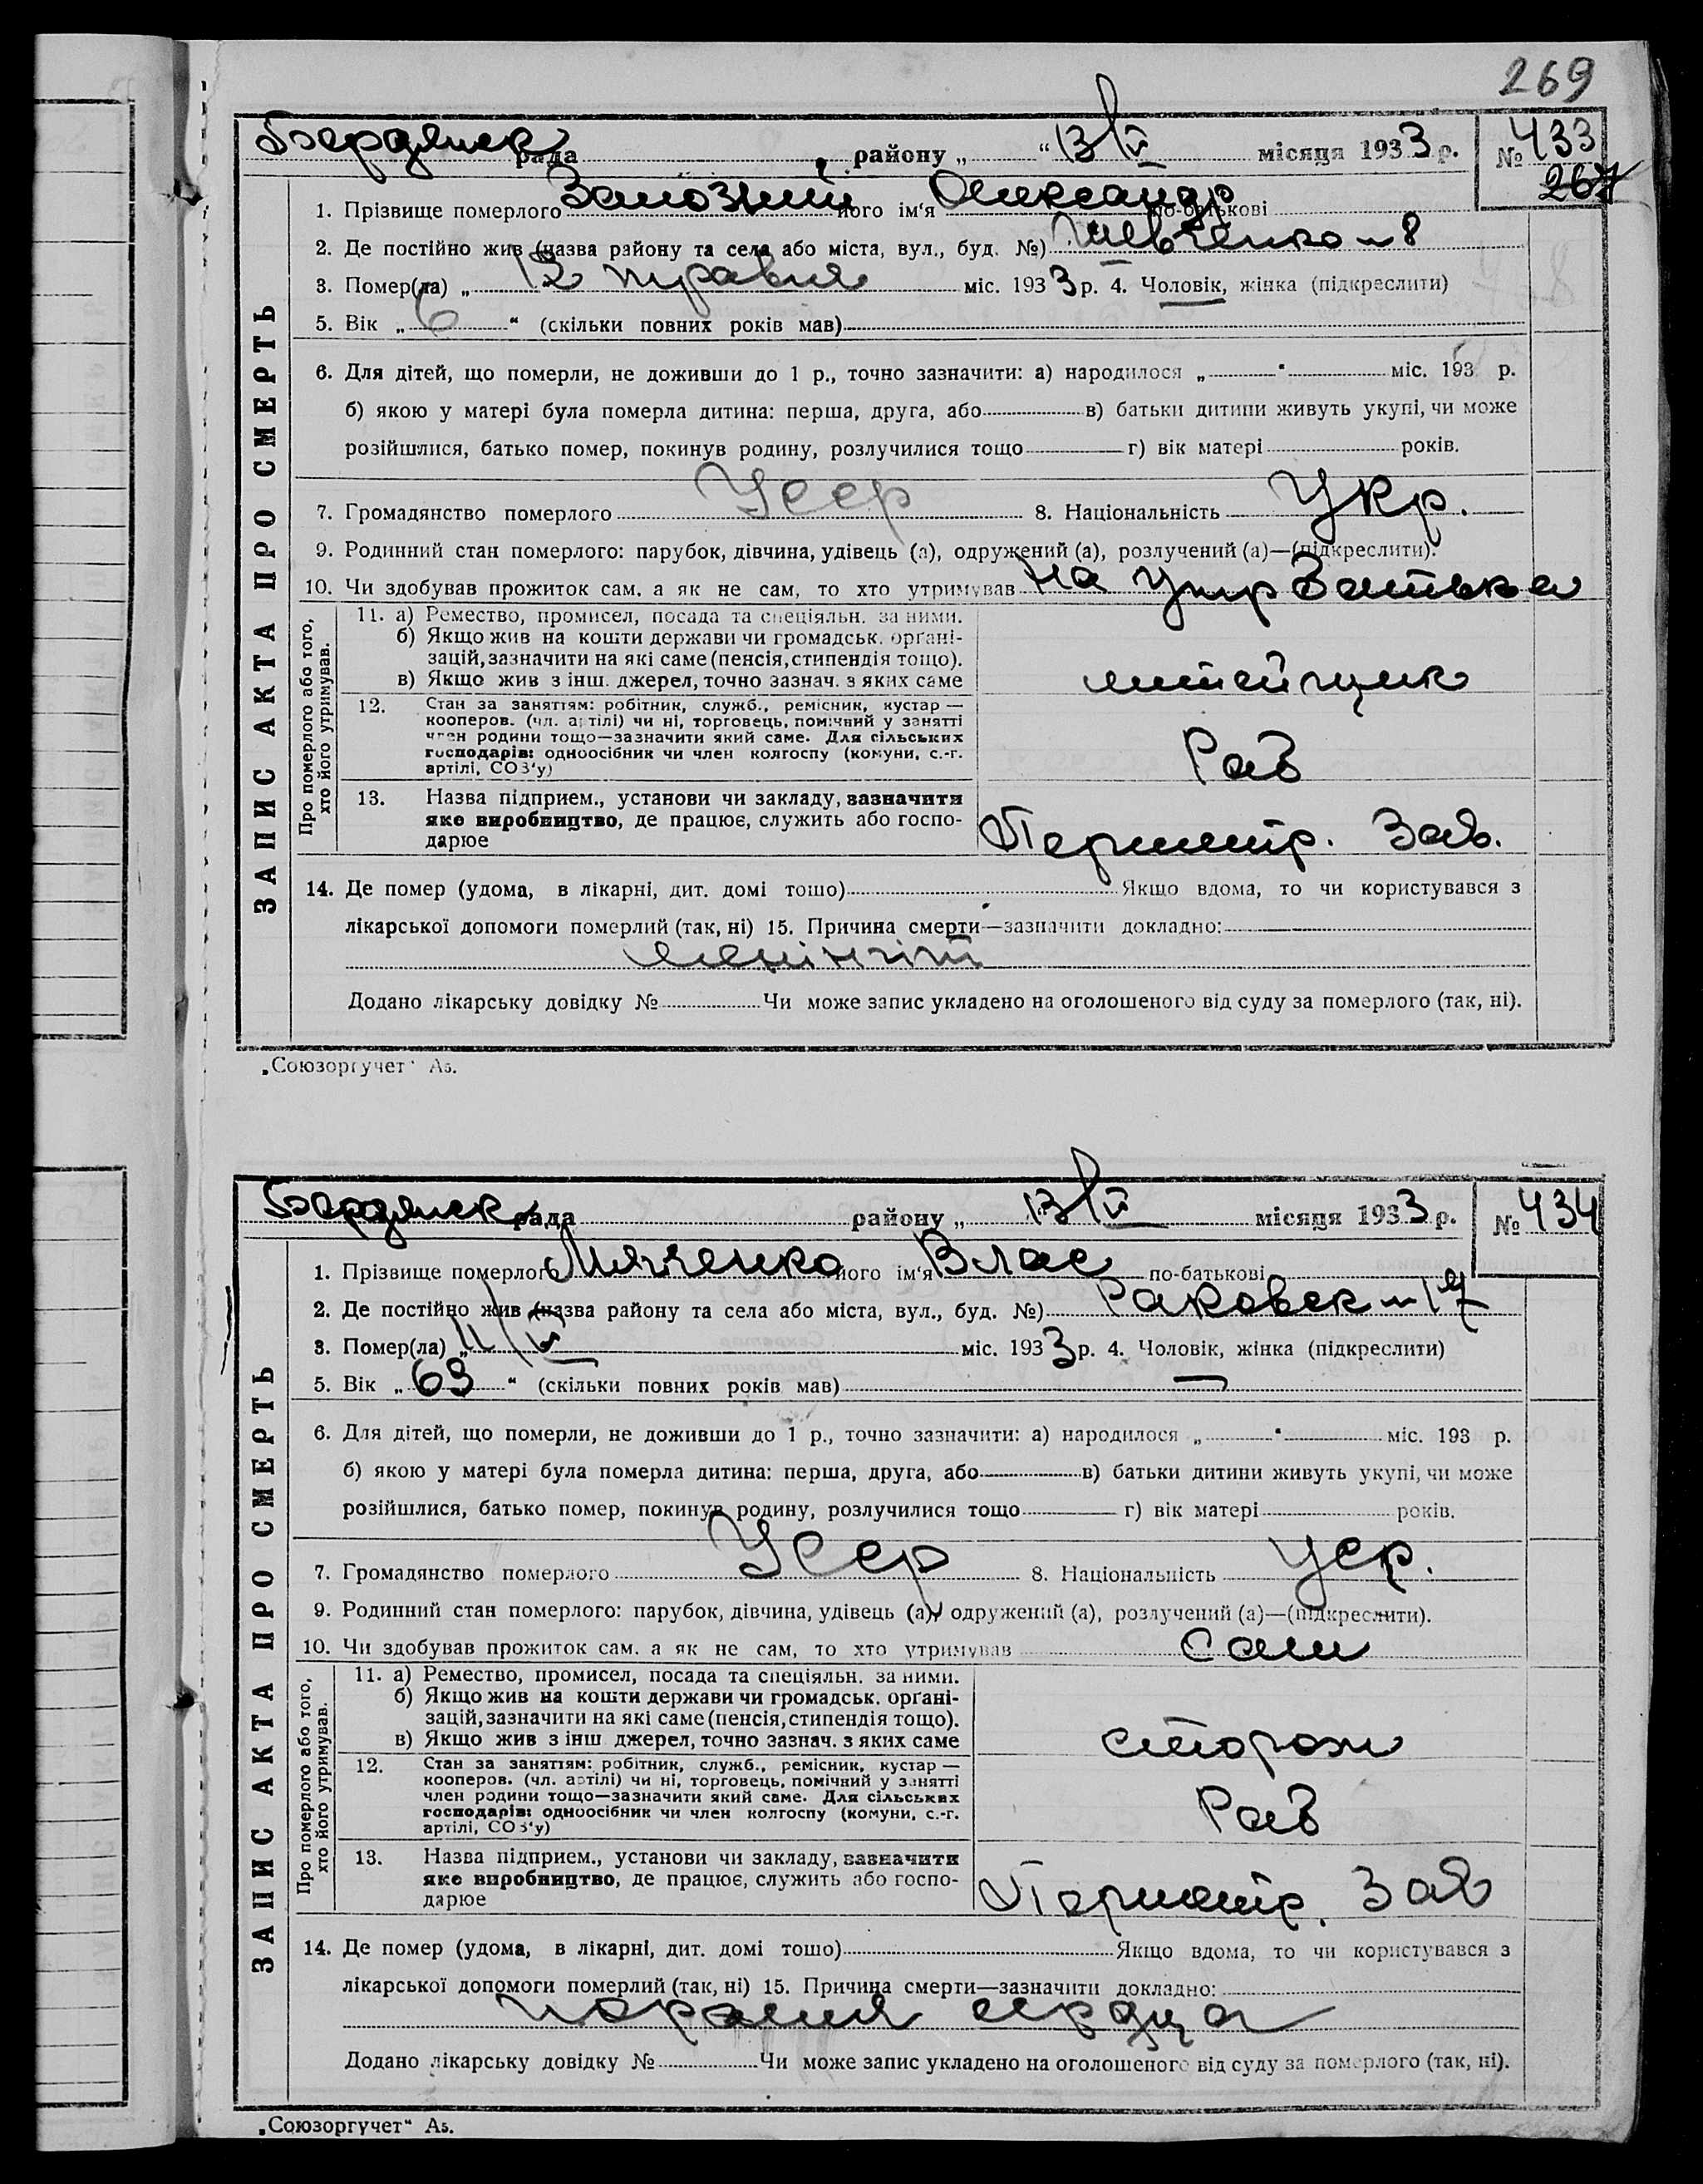 269
Бердянск рада району „ “ 13/V місяця 1933 р. № 433
267
1. Прізвище померлого Заможний його ім‘я Олександр по-батькові
2. Де постійно жив (назва району та села або міста, вул., буд. №) Шевченко 8
3. Помер(ла) „ 12 травня міс. 1933 р. 4. Чоловік, жінка (підкреслити)
5. Вік „ 6 “ (скільки повних років мав)
6. Для дітей, що померли, не доживши до 1 р., точно зазначити: а) народилося „ “ міс. 193 р.
б) якою у матері була померла дитина: перша, друга, або в) батьки дитини живуть укупі, чи може
розійшлися, батько помер, покинув родину, розлучилися тощо г) вік матері років.
7. Громадянство померлого Усср 8. Національність Укр.
9. Родинний стан померлого: парубок, дівчина, удівець (а), одружений (а), розлучений (а)—(підкреслити).
10. Чи здобував прожиток сам, а як не сам, то хто утримував на утр Батька
ЗАПИС АКТА ПРО СМЕРТЬ
Про померлого або того,
хто його утримував.
11. а) Ремество, промисел, посада та спеціяльн. за ними.
б) Якщо жив на кошти держави чи громадськ. орґані-
зацій, зазначити на які саме (пенсія, стипендія тощо).
в) Якщо жив з інш. джерел, точно зазнач. з яких саме
литейщик
12. Стан за заняттям: робітник, служб., ремісник, кустар —
кооперов. (чл. артілі) чи ні, торговець, помічний у занятті
член родини тощо—зазначити який саме. Для сільських
господарів: одноосібник чи член колгоспу (комуни, с.-г.
артілі, СОЗ‘у)
Раб
13. Назва підприєм., установи чи закладу, зазначити
яке виробництво, де працює, служить або госпо-
дарює
Першотр. Зав.
14. Де помер (удома, в лікарні, дит. домі тощо) Якщо вдома, то чи користувався з
лікарської допомоги померлий (так, ні) 15. Причина смерти—зазначити докладно:
менінгіт
Додано лікарську довідку № Чи може запис укладено на оголошеного від суду за померлого (так, ні).
„Союзоргучет“ А5.
Бердянск рада району „ 13/V місяця 1933 р. № 434
1. Прізвище померлого Мяченко його ім‘я Влас по-батькові
2. Де постійно жив (назва району та села або міста, вул., буд. №) Раковск 17
3. Помер(ла) „ 11/V міс. 1933 р. 4. Чоловік, жінка (підкреслити)
5. Вік „ 69 “ (скільки повних років мав)
6. Для дітей, що померли, не доживши до 1 р., точно зазначити: а) народилося „ “ міс. 193 р.
б) якою у матері була померла дитина: перша, друга, або в) батьки дитини живуть укупі, чи може
розійшлися, батько помер, покинув родину, розлучилися тощо г) вік матері років.
7. Громадянство померлого Усср 8. Національність Укр.
9. Родинний стан померлого: парубок, дівчина, удівець (а), одружений (а), розлучений (а)—(підкреслити).
10. Чи здобував прожиток сам, а як не сам, то хто утримував Сам
ЗАПИС АКТА ПРО СМЕРТЬ
Про померлого або того,
хто його утримував.
11. а) Ремество, промисел, посада та спеціяльн. за ними.
б) Якщо жив на кошти держави чи громадськ. орґані-
зацій, зазначити на які саме (пенсія, стипендія тощо).
в) Якщо жив з інш. джерел, точно зазнач. з яких саме
сторож
12. Стан за заняттям: робітник, служб., ремісник, кустар —
кооперов. (чл. артілі) чи ні, торговець, помічний у занятті
член родини тощо—зазначити який саме. Для сільських
господарів: одноосібник чи член колгоспу (комуни, с.-г.
артілі, СОЗ‘у)
Раб
13. Назва підприєм., установи чи закладу, зазначити
яке виробництво, де працює, служить або госпо-
дарює
Першотр. Зав
14. Де помер (удома, в лікарні, дит. домі тощо) Якщо вдома, то чи користувався з
лікарської допомоги померлий (так, ні) 15. Причина смерти—зазначити докладно:
сердца
Додано лікарську довідку № Чи може запис укладено на оголошеного від суду за померлого (так, ні).
„Союзоргучет“ А5.